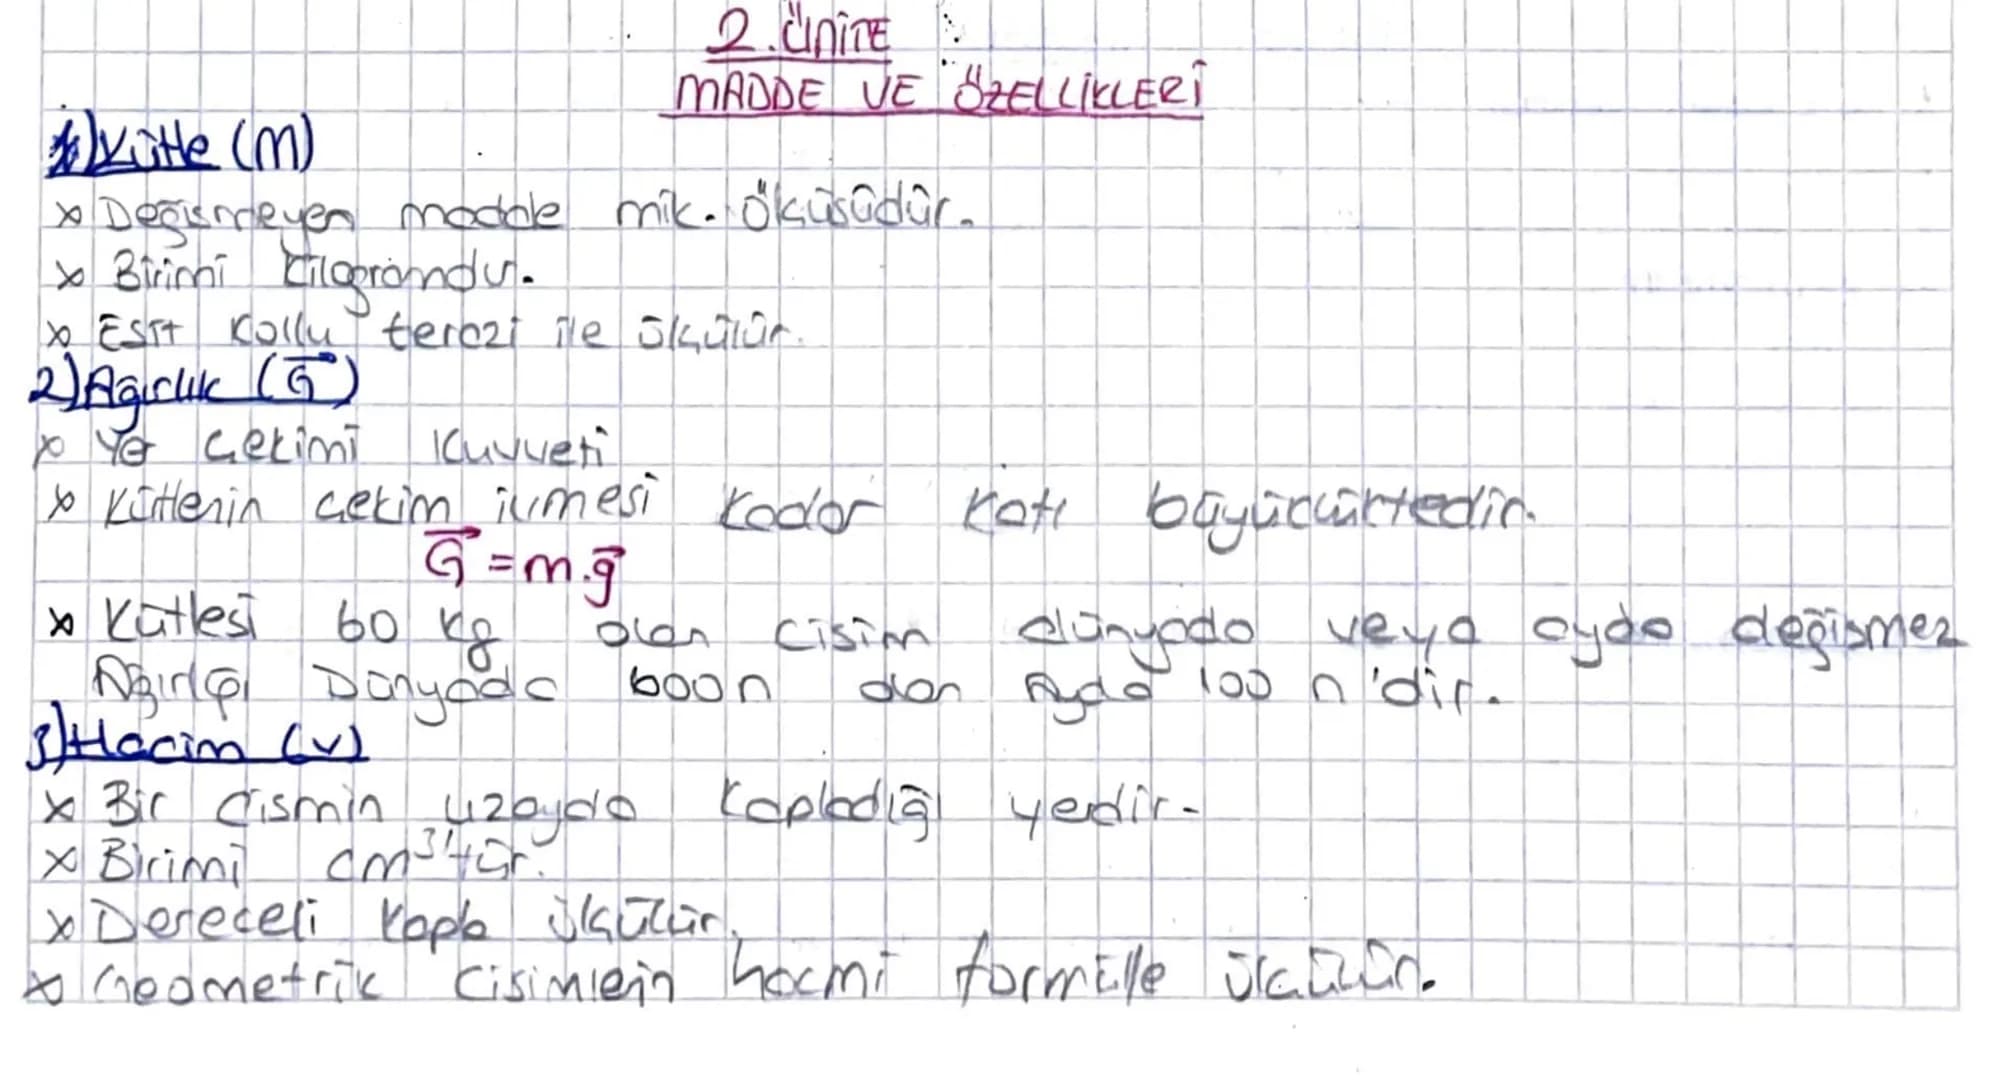 2. ÜNİTE
MADDE VE ÖZELLİKLERİ
1) Kütle (m)
x Değişmeyen madde mik. ölçüsüdür.
x Birimi kilogramdır.
x Eşit kollu terazi ile ölçülür.
2) Ağırlık (G)
x Yer çekimi kuvveti
x Kütlenin çekim ivmesi kadar katı büyüklüktedir.
G = m.g
x Kütlesi 60 kg olan cisim dünyada veya ayda değişmez
Ağırlığı Dünyada 600n olan Ayda 100 n'dir.
3) Hacim (v)
x Bir cismin uzayda kapladığı yerdir.
x Birimi cm³'tür.
x Dereceli kapla ölçülür.
x Geometrik cisimlein hacmi formülle ölçülür.